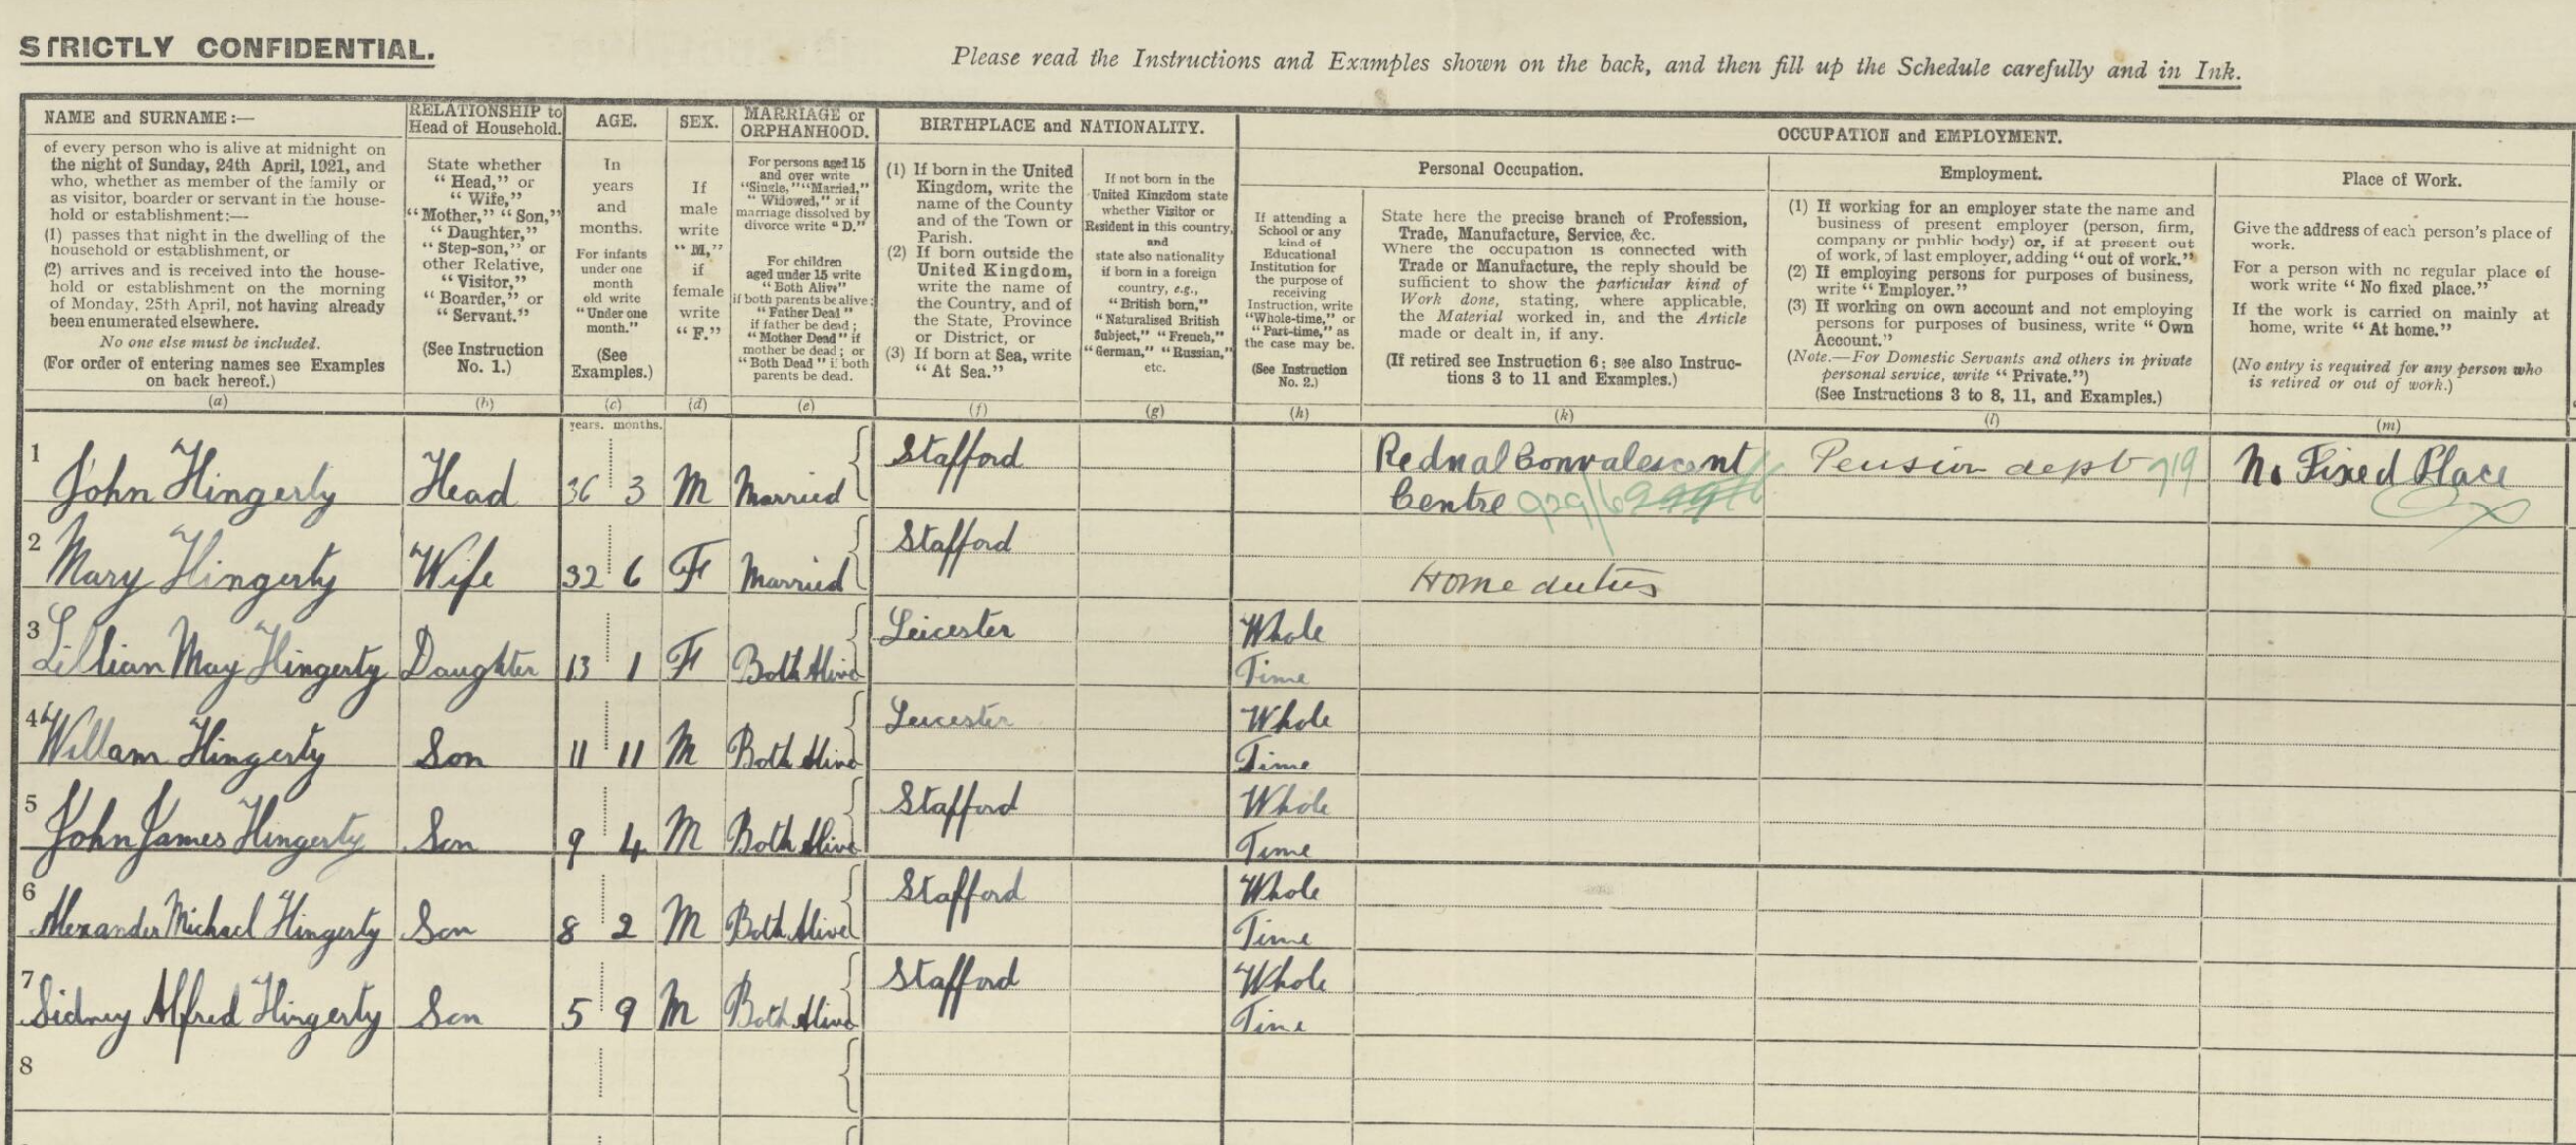 STRICTLY CONFIDENTIAL.
Please read the Instructions and Examples shown on the back, and then fill up the Schedule carefully and in Ink.
NAME and SURNAME :—
of every person who is alive at midnight on
the night of Sunday, 24th April, 1921, and
who, whether as member of the family or
as visitor, boarder or servant in the house-
hold or establishment:—
(1) passes that night in the dwelling of the
household or establishment, or
(2) arrives and is received into the house-
hold or establishment on the morning
of Monday, 25th April, not having already
been enumerated elsewhere.
No one else must be included.
(For order of entering names see Examples
on back hereof.)
(a)
RELATIONSHIP to
Head of Household.
State whether
"Head," or
"Wife,"
"Mother," "Son,"
"Daughter,"
"Step-son," or
other Relative,
"Visitor,"
"Boarder," or
"Servant."
(See Instruction
No. 1.)
(b)
AGE.
In
years
and
months.
For infants
under one
month
old write
"Under one
month."
(See
Examples.)
(c)
years. months.
SEX.
If
male
write
"M,"
if
female
write
"F."
(d)
MARRIAGE or
ORPHANHOOD.
For persons aged 15
and over write
"Single," "Married,"
"Widowed," or if
marriage dissolved by
divorce write "D."
For children
aged under 15 write
"Both Alive"
if both parents be alive;
"Father Dead"
if father be dead;
"Mother Dead" if
mother be dead; or
"Both Dead" if both
parents be dead.
(e)
BIRTHPLACE and NATIONALITY.
(1) If born in the United
Kingdom, write the
name of the County
and of the Town or
Parish.
(2) If born outside the
United Kingdom,
write the name of
the Country, and of
the State, Province
or District, or
(3) If born at Sea, write
"At Sea."
(f)
If not born in the
United Kingdom state
whether Visitor or
Resident in this country,
and
state also nationality
if born in a foreign
country, e.g.,
"British born,"
"Naturalised British
Subject," "French,"
"German," "Russian,"
etc.
(g)
OCCUPATION and EMPLOYMENT.
If attending a
School or any
kind of
Educational
Institution for
the purpose of
receiving
Instruction, write
"Whole-time," or
"Part-time," as
the case may be.
(See Instruction
No. 2.)
(h)
Personal Occupation.
State here the precise branch of Profession,
Trade, Manufacture, Service, &c.
Where the occupation is connected with
Trade or Manufacture, the reply should be
sufficient to show the particular kind of
Work done, stating, where applicable,
the Material worked in, and the Article
made or dealt in, if any.
(If retired see Instruction 6; see also Instruc-
tions 3 to 11 and Examples.)
(k)
Employment.
(1) If working for an employer state the name and
business of present employer (person, firm,
company or public body) or, if at present out
of work, of last employer, adding "out of work."
(2) If employing persons for purposes of business,
write "Employer."
(3) If working on own account and not employing
persons for purposes of business, write "Own
Account."
(Note.—For Domestic Servants and others in private
personal service, write "Private.")
(See Instructions 3 to 8, 11, and Examples.)
(l)
Place of Work.
Give the address of each person's place of
work.
For a person with no regular place of
work write "No fixed place."
If the work is carried on mainly at
home, write "At home."
(No entry is required for any person who
is retired or out of work.)
(m)
1 John Hingerty Head 36 3 M Married Stafford Rednal Convalescent Pension dept 719 No Fixed Place
Centre 929/6
2 Mary Hingerty Wife 32 6 F Married Stafford Home duties
3 Lillian May Hingerty Daughter 13 1 F Both Alive Leicester Whole
Time
4 William Hingerty Son 11 11 M Both Alive Leicester Whole
Time
5 John James Hingerty Son 9 4 M Both Alive Stafford Whole
Time
6 Alexander Michael Hingerty Son 8 2 M Both Alive Stafford Whole
Time
7 Sidney Alfred Hingerty Son 5 9 M Both Alive Stafford Whole
Time
8